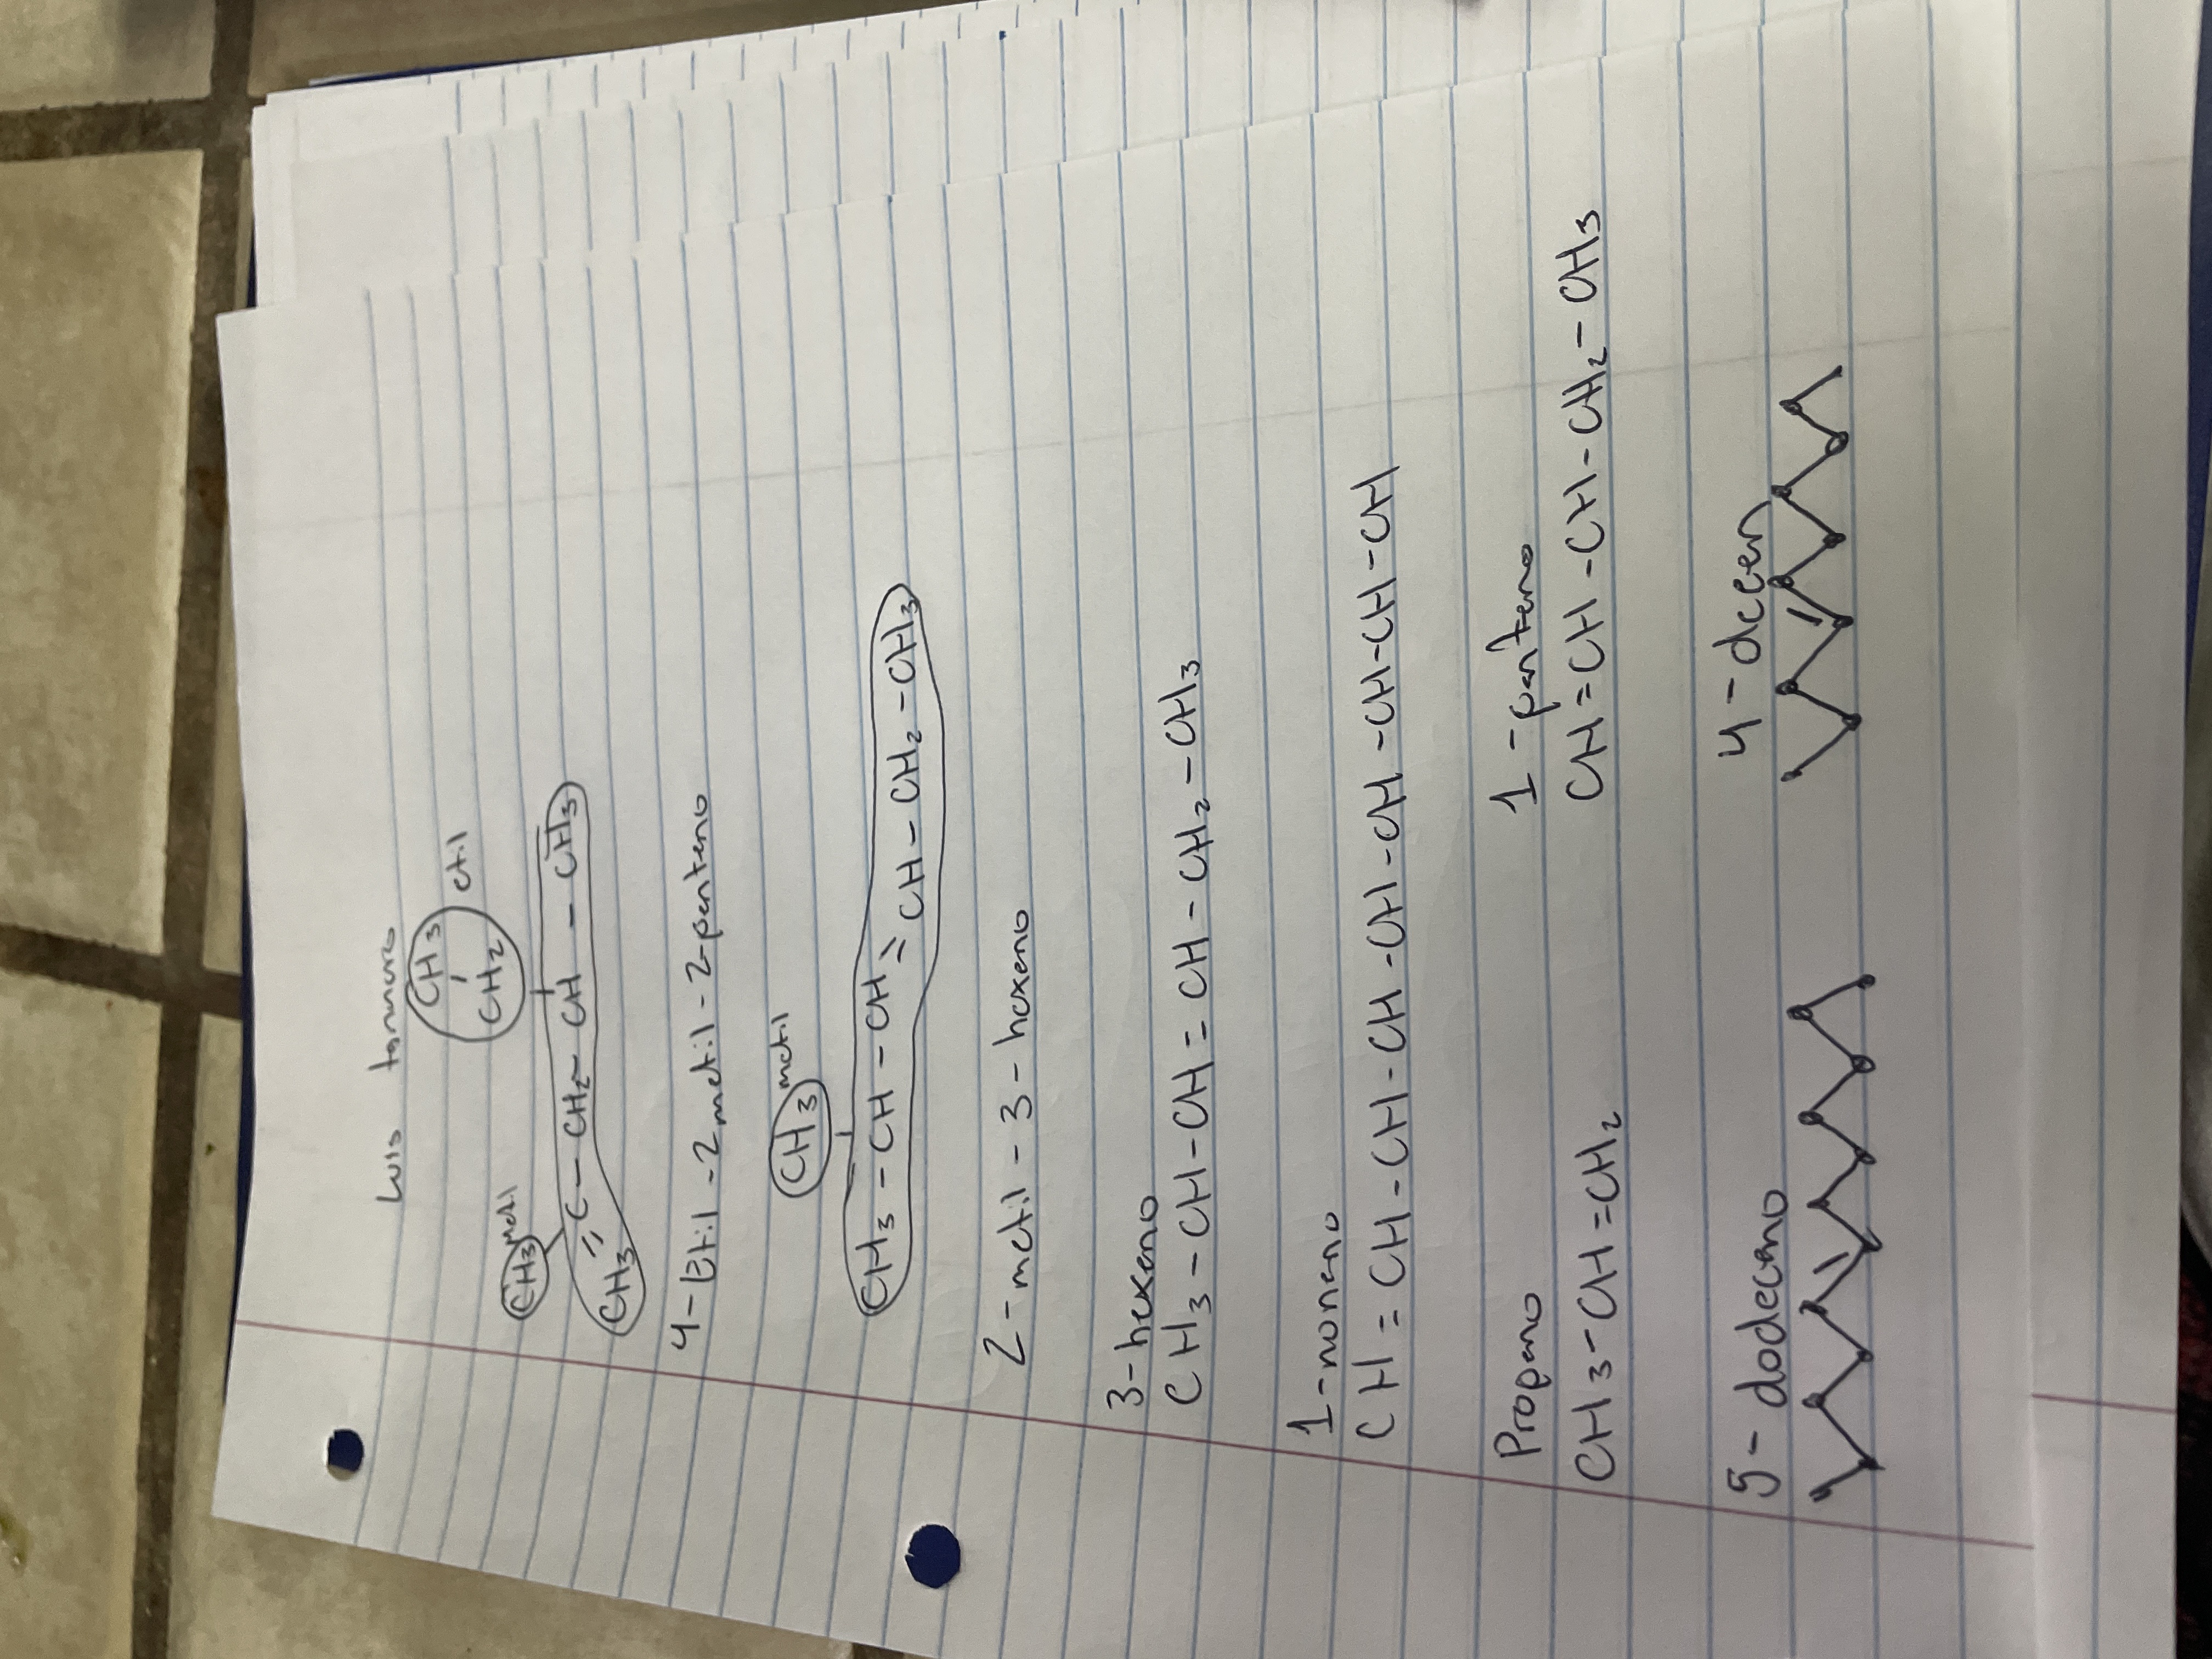 Luis
CH3
CH2 etil
CH3 metil
CH3 = C - CH2 - CH - CH - CH3
4-Etil-2metil-2-penteno
CH3 metil
CH3 - CH - CH = CH - CH2 - CH3
2-metil-3-hexeno
3-hexeno
CH3 - CH - CH = CH - CH2 - CH3
1-noneno
CH = CH - CH - CH - CH - CH - CH - CH - CH - CH - CH
Propeno 1-penteno
CH3 - CH = CH2 CH = CH - CH - CH2 - CH3
5-dodeceno 4-dceen